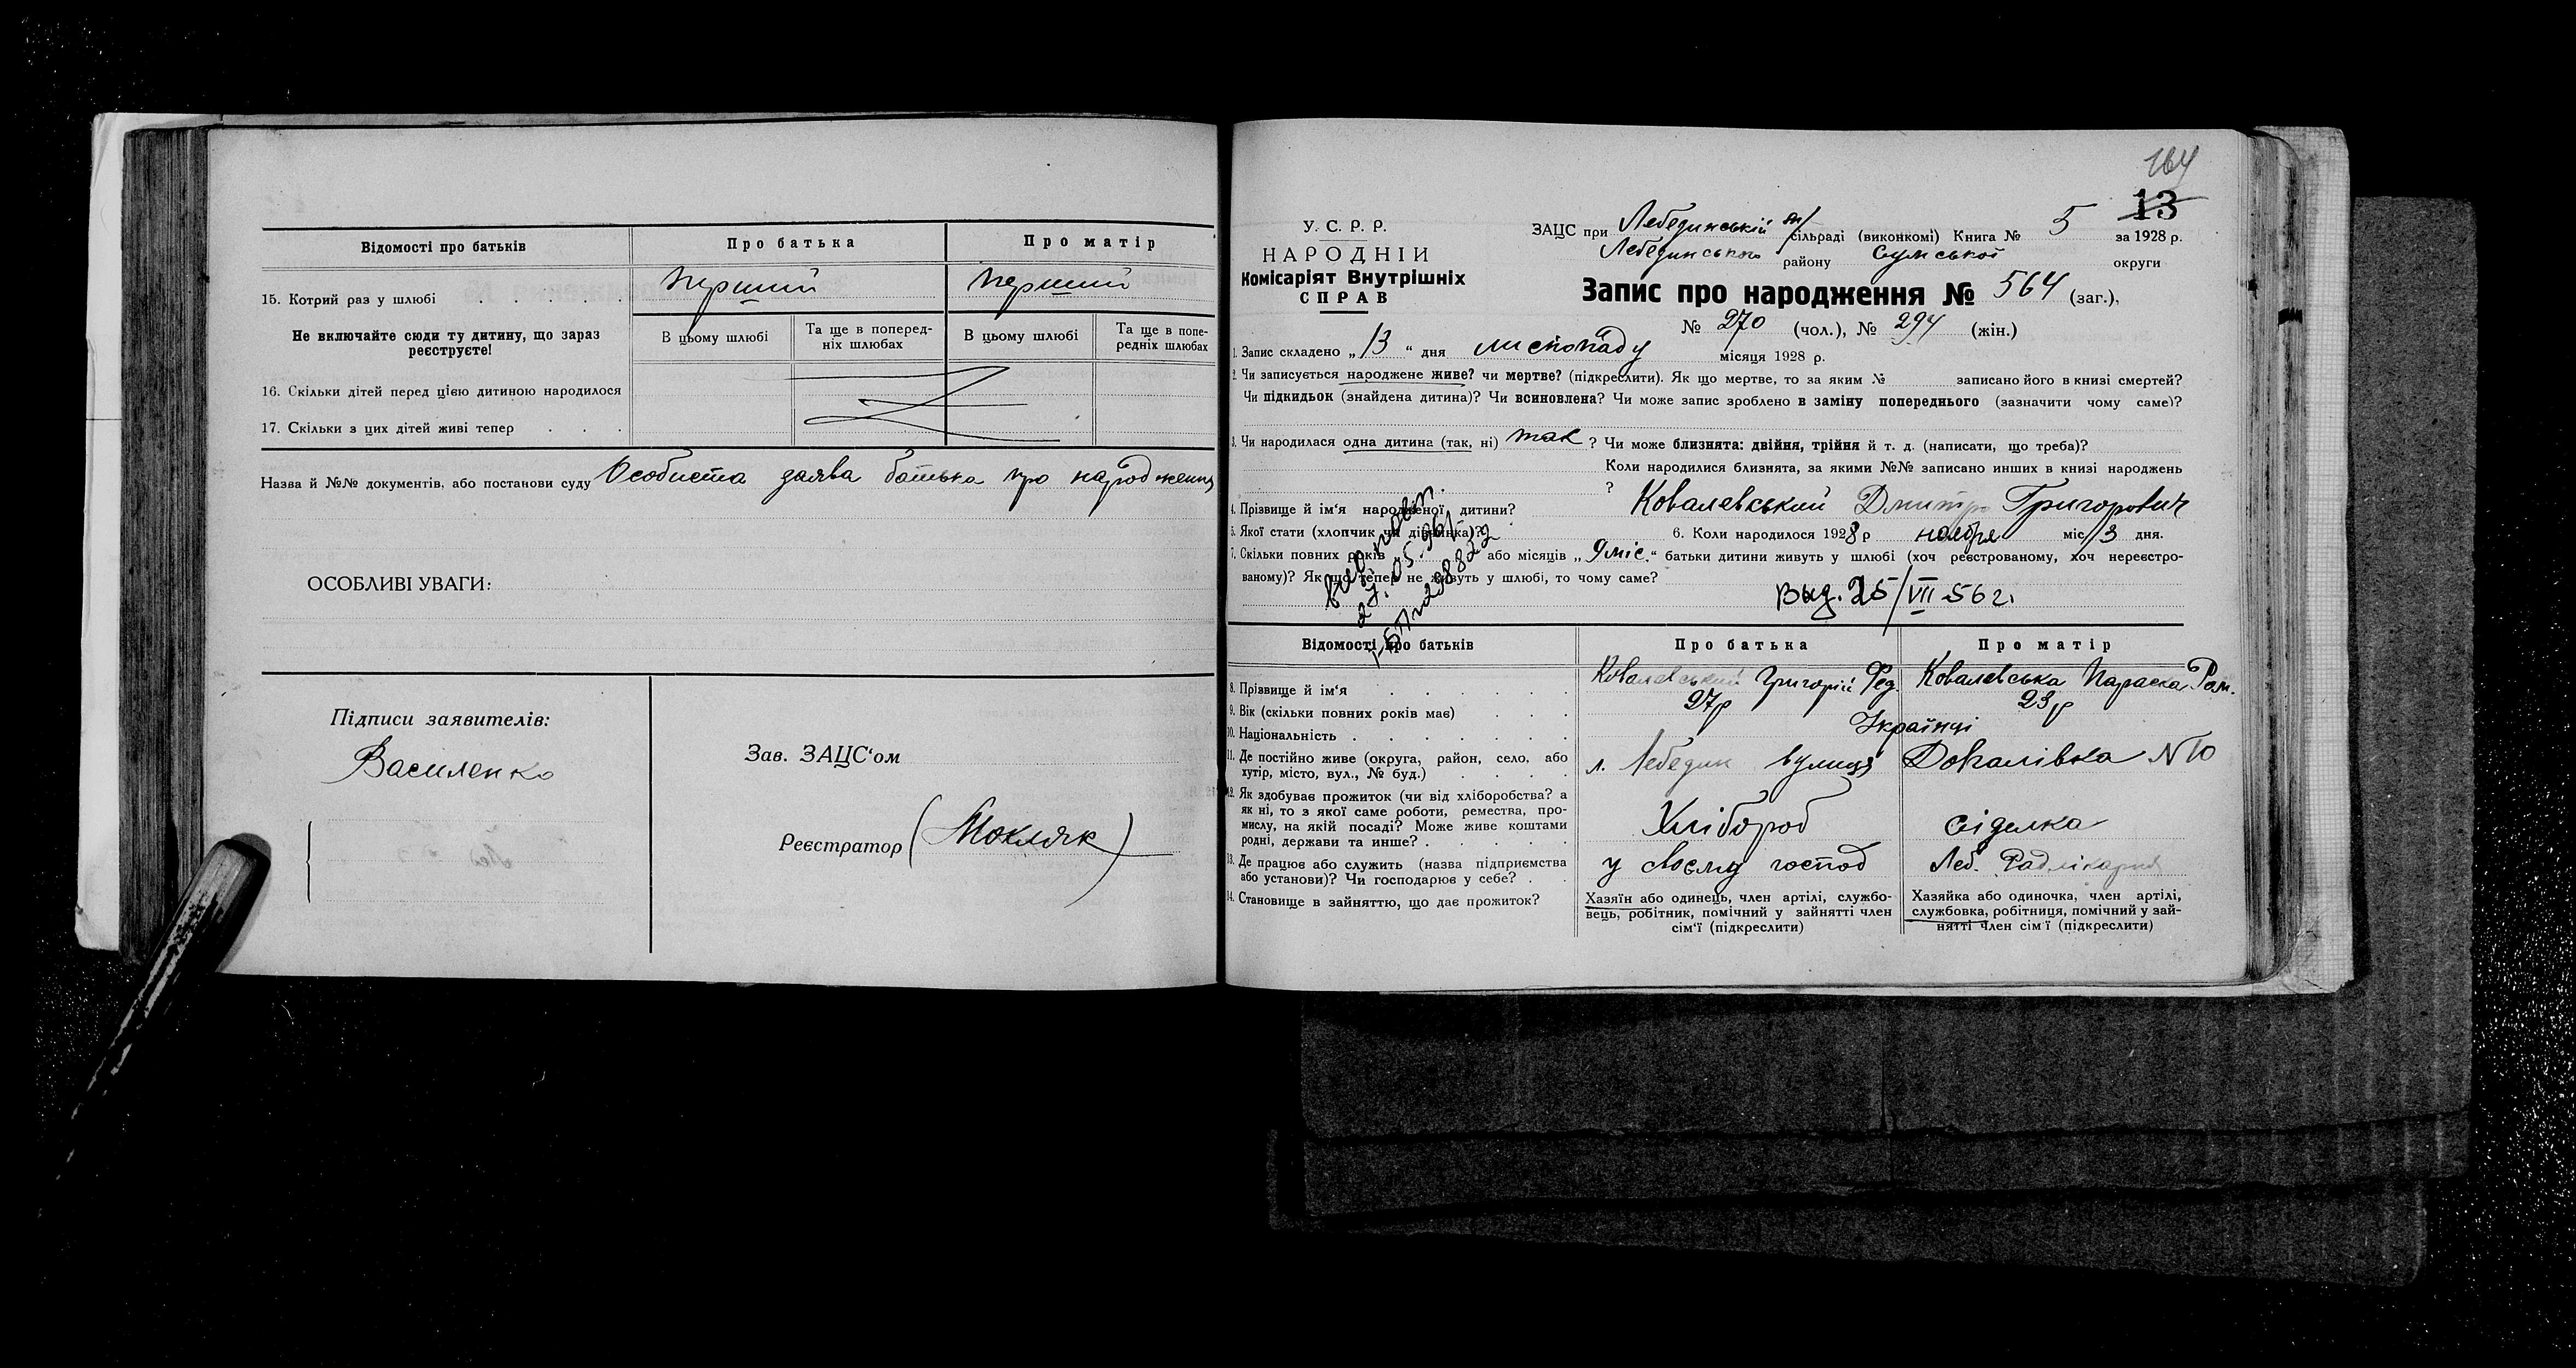 Відомості про батьків
Про батька
Про матір
15. Котрий раз у шлюбі . . . . . .
перший
перший
Не включайте сюди ту дитину, що зараз
реєструєте!
В цьому шлюбі
Та ще в поперед-
ніх шлюбах
В цьому шлюбі
Та ще в попе-
редніх шлюбах
16. Скільки дітей перед цією дитиною народилося
17. Скільки з цих дітей живі тепер . . .
Назва й №№ документів, або постанови суду Особиста заява батька про народження
ОСОБЛИВІ УВАГИ:
Підписи заявителів:
Василенко
Зав. ЗАЦС‘ом
Реєстратор (Мокляк)
164
13
У. С. Р. Р.
НАРОДНІЙ
Комісаріят Внутрішніх
СПРАВ
ЗАЦС при Лебединській м/сільраді (виконкомі) Книга № 5 за 1928 р.
Лебединського району Сумської округи
Запис про народження № 564 (заг.),
№ 270 (чол.), № 294 (жін.)
1. Запис складено „13“ дня листопаду місяця 1928 р.
2. Чи записується народжене живе? чи мертве? (підкреслити). Як що мертве, то за яким № записано його в книзі смертей?
Чи підкидьок (знайдена дитина)? Чи всиновлена? Чи може запис зроблено в заміну попереднього (зазначити чому саме)?
3. Чи народилася одна дитина (так, ні) так ? Чи може близнята: двійня, трійня й т. д. (написати, що треба)?
Коли народилися близнята, за якими №№ записано инших в книзі народжень
?
4. Прізвище й ім‘я народженої дитини? Ковалевський Дмитро Григорович
5. Якої стати (хлопчик чи дівчинка)? 6. Коли народилося 1928 р ноября міс 13 дня.
7. Скільки повних років або місяців „9 міс.“ батьки дитини живуть у шлюбі (хоч реєстрованому, хоч нереєстро-
ваному)? Як що тепер не живуть у шлюбі, то чому саме?
Выд. 25/VII-56 г.
Відомості про батьків
Про батька
Про матір
8. Прізвище й ім‘я . . . . .
Ковалевський Григорій Фед.
Ковалевська Параска Ром.
9. Вік (скільки повних років має) . . .
27р
23р
10. Національність . . . . . . .
Українці
11. Де постійно живе (округа, район, село, або
хутір, місто, вул., № буд.) . . . .
м. Лебедин вулиця Докалівка № 10
12. Як здобуває прожиток (чи від хліборобства? а
як ні, то з якої саме роботи, ремества, про-
мислу, на якій посаді? Може живе коштами
родні, держави та инше? . . . . .
Хлібороб
сіделка
13. Де працює або служить (назва підприємства
або установи)? Чи господарює у себе? . .
у своєму господ
Леб. Радлікарня
14. Становище в зайняттю, що дає прожиток?
Хазяїн або одинець, член артілі, службо-
вець, робітник, помічний у зайнятті член
сім‘ї (підкреслити)
Хазяйка або одиночка, член артілі,
службовка, робітниця, помічний у зай-
нятті член сім‘ї (підкреслити)